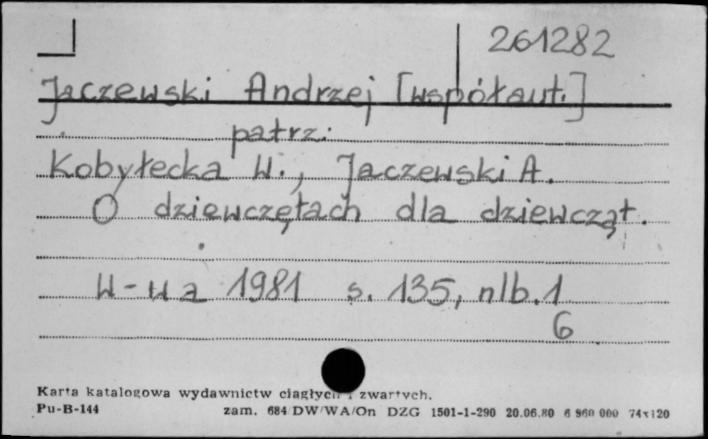 261282
Jaczewski Andrzej [współaut.]
patrz:
Kobyłecka W., Jaczewski A.
O dziewczętach dla dziewcząt.
W-wa 1981 s. 135, nlb. 1
6
Karta katalogowa wydawnictw ciągłych i zwartych.
Pu-B-144 zam. 684/DW/WA/On DZG 1501-1-290 20.06.80 6 960 000 74x120